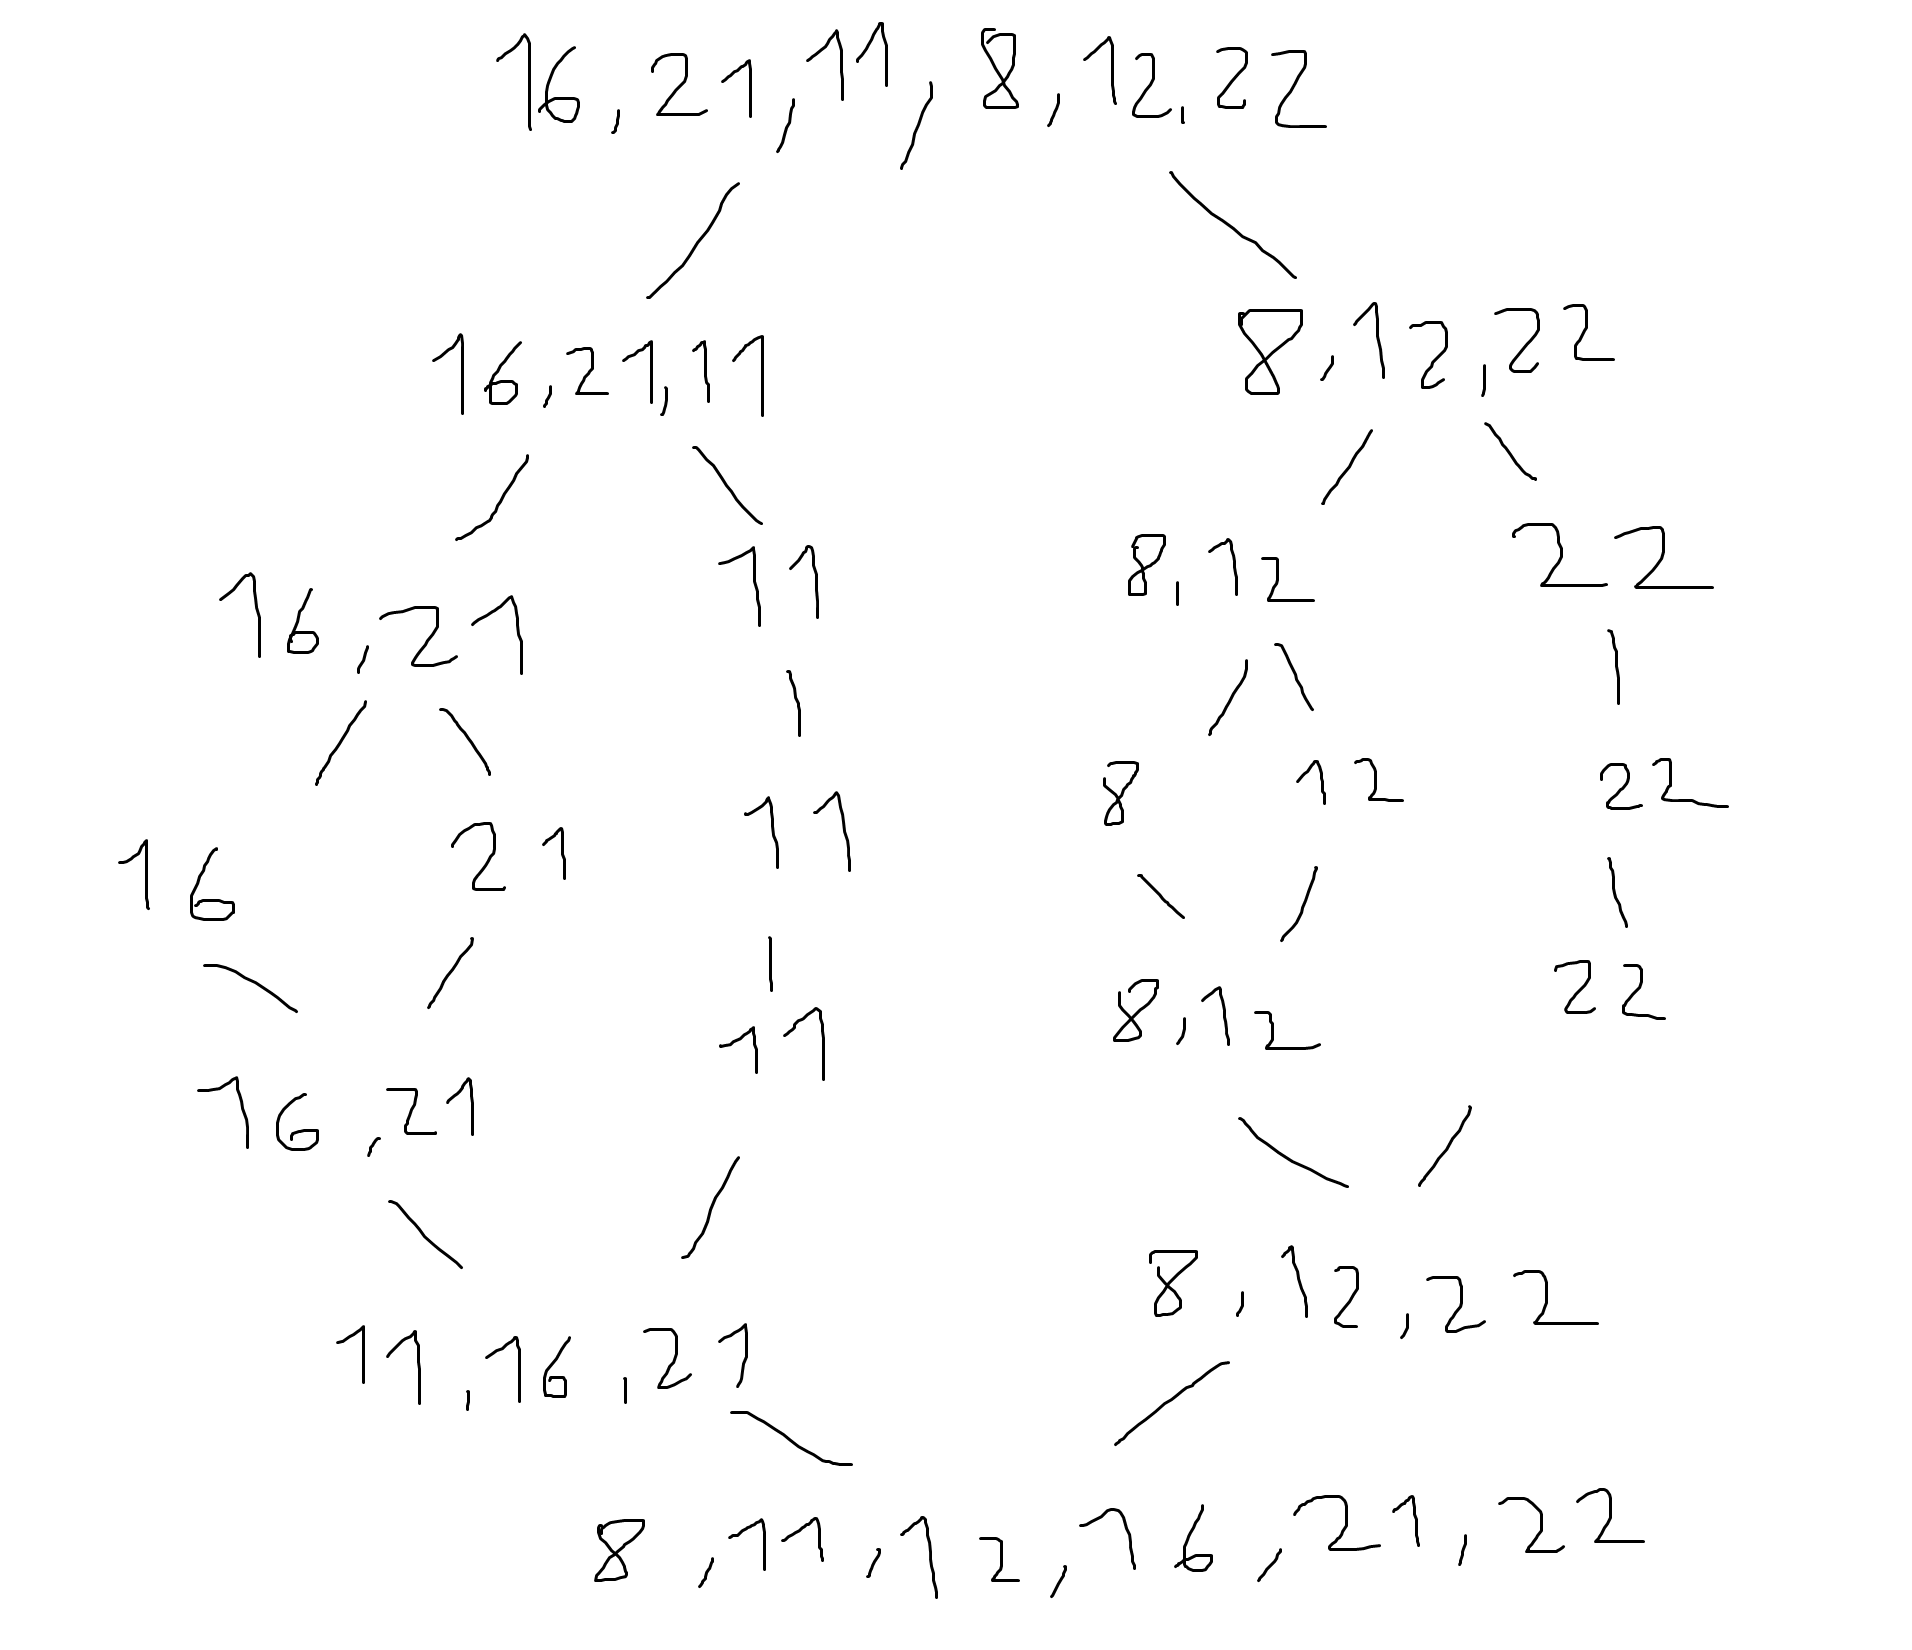 16,21,11,8,12,22
16,21,11 8,12,22
16,21 11 8,12 22
16 21 11 8 12 22
16,21 11 8,12 22
11,16,21 8,12,22
8,11,12,16,21,22